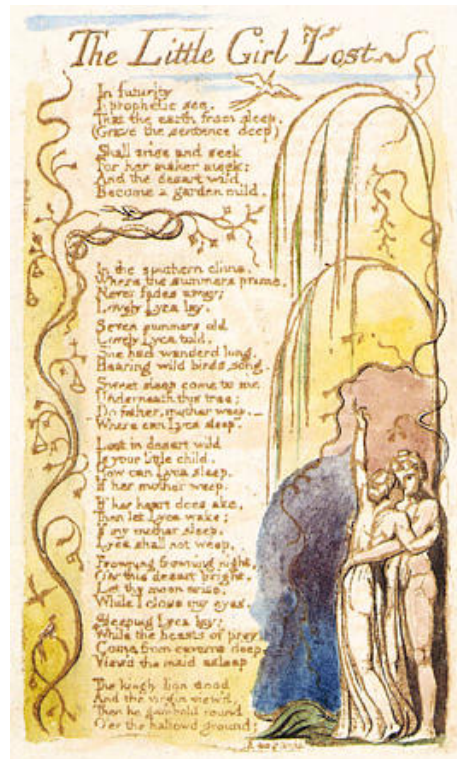 The Little Girl Lost
In futurity
I prophetic see,
That the earth from sleep,
(Grave the sentence deep)
Shall arise and seek
For her maker meek:
And the desart wild
Become a garden mild.
In the southern clime,
Where the summers prime,
Never fades away;
Lovely Lyca lay.
Seven summers old
Lovely Lyca told,
She had wanderd long,
Hearing wild birds song.
Sweet sleep come to me
Underneath this tree;
Do father, mother weep.
Where can Lyca sleep.
Lost in desart wild
Is your little child.
How can Lyca sleep,
If her mother weep.
If her heart does ake,
Then let Lyca wake;
If my mother sleep,
Lyca shall not weep.
Frowning frowning night,
O'er this desart bright,
Let thy moon arise,
While I close my eyes.
Sleeping Lyca lay;
While the beasts of prey,
Come from caverns deep,
View'd the maid asleep
The kingly lion stood
And the virgin view'd,
Then he gambold round
O'er the hallowd ground;